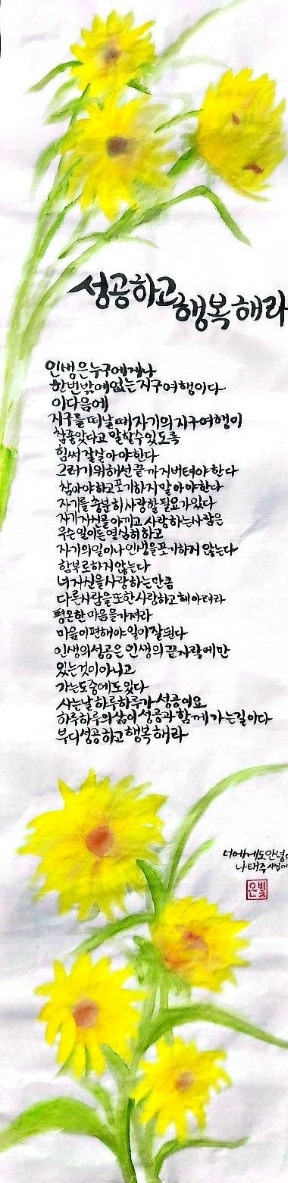 성공하고
행복해라
인생은 누구에게나
한번밖에 없는 지구여행이다
이다음에
지구를 떠날 때 자기의 지구여행이
참 좋았다고 말할 수 있도록
힘써 잘 살아야 한다
그러기 위해선 끝까지 버텨야 한다
참아야 하고 포기하지 말아야 한다
자기를 충분히 사랑할 필요가 있다
자기 자신을 아끼고 사랑하는 사람은
무슨 일이든 열심히 하고
자기의 일이나 인생을 포기하지 않는다
함부로 하지 않는다
너 자신을 사랑하는 만큼
다른 사람을 또한 사랑하고 헤아려라
평온한 마음을 가져라
마음이 편해야 일이 잘 된다
인생의 성공은 인생의 끝자락에만
있는 것이 아니고
가는 도중에도 있다
사는 날 하루하루가 성공이요
하루하루의 삶이 성공과 함께 가는 길이다
부디 성공하고 행복해라
너에게도 안녕이
나태주 시인의